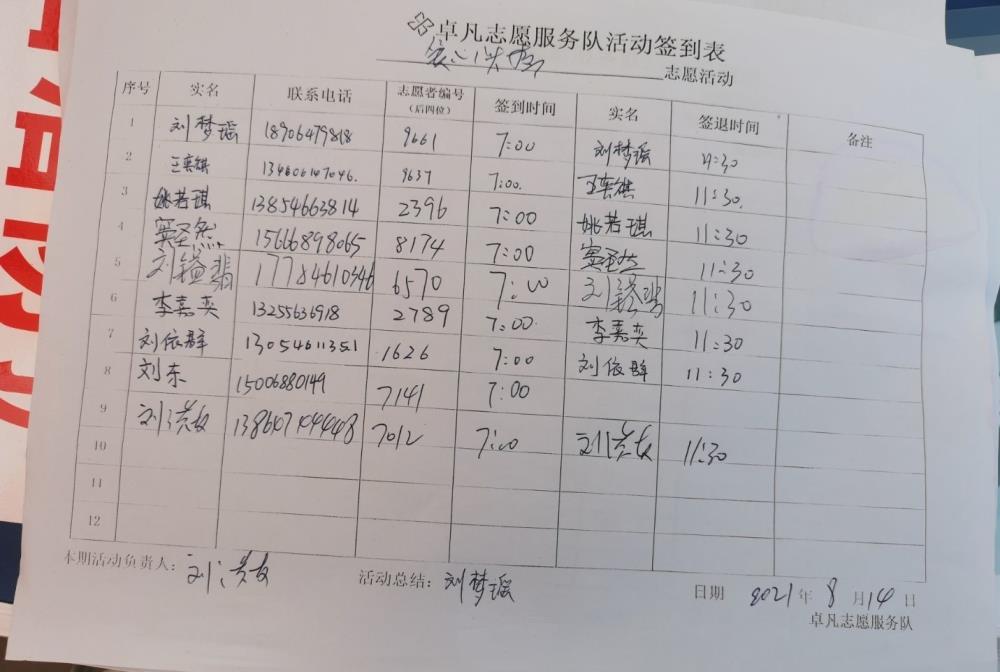 卓凡志愿服务队活动签到表
志愿活动
序号 实名 联系电话 志愿者编号（后四位） 签到时间 实名 签退时间 备注
1 刘梦瑶 18906479818 9661 7:00 刘梦瑶 11:30
2 王奕祺 9637 7:00. 王奕祺 11:30.
3 姚若琪 13854663814 2396 7:00 姚若琪 11:30
4 窦圣然 15666898065 8174 7:00 窦圣然 11:30
5 刘 17784610346 6570 7:00 刘 11:30
6 李嘉奕 13255636918 2789 7:00 李嘉奕 11:30
7 刘依群 13054611351 1626 7:00 刘依群 11:30
8 刘东 15006880149 7141 7:00
9 刘 7012 7:00 刘 11:30
10
11
12
本期活动负责人： 刘 活动总结： 刘梦瑶 日期 2021年 8月14日
卓凡志愿服务队